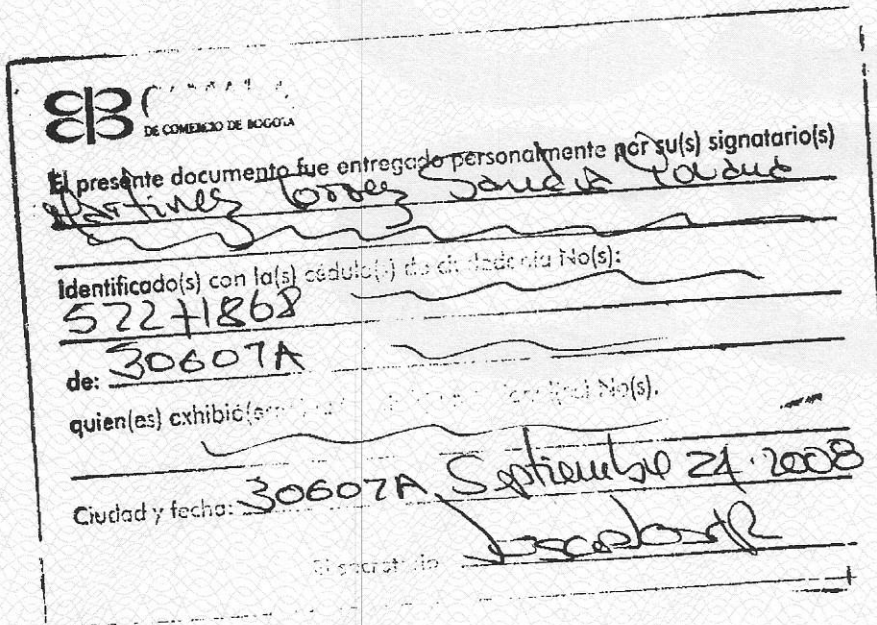 DE COMERCIO DE BOGOTA
El presente documento fue entregado personalmente por su(s) signatario(s)
Martinez Torres Sandra
Identificado(s) con la(s) cédula(s) de ciudadanía No(s):
52271868
de: BOGOTA
quien(es) exhibió(eron)
No(s).
Ciudad y fecha: BOGOTA, Septiembre 24 2008
El secretario